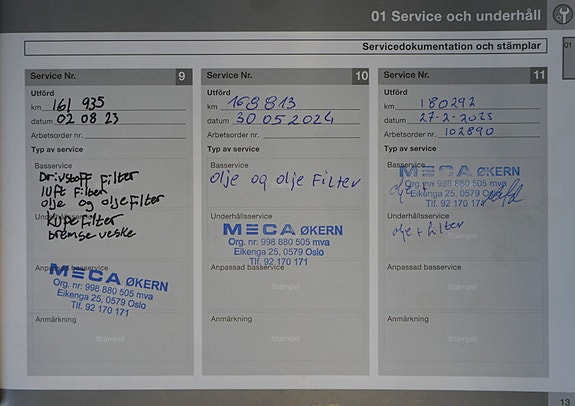 01 Service och underhåll
01
Servicedokumentation och stämplar
Service Nr. 9
Utförd
km 161 935
datum 02 08 23
Arbetsorder nr.
Typ av service
Basservice
Drivstoff Filter
luft Filter
olje og olje Filter
Underhållsservice
kupe Filter
bremseveske
Anpassad basservice
MECA ØKERN
Org. nr: 998 880 505 mva
Eikenga 25, 0579 Oslo
Tlf. 92 170 171
Anmärkning
Stämpel
Service Nr. 10
Utförd
km 168813
datum 30 05 2024
Arbetsorder nr.
Typ av service
Basservice
olje og olje Filter
Underhållsservice
MECA ØKERN
Org. nr: 998 880 505 mva
Eikenga 25, 0579 Oslo
Tlf. 92 170 171
Anpassad basservice
Stämpel
Anmärkning
Stämpel
Service Nr. 11
Utförd
km 180292
datum 27-2-2025
Arbetsorder nr. 102890
Typ av service
Basservice
MECA ØKERN
Org. nr: 998 880 505 mva
Eikenga 25, 0579 Oslo
Tlf. 92 170 171
Underhållsservice
olje + filter
Stämpel
Anpassad basservice
Stämpel
Anmärkning
Stämpel
13